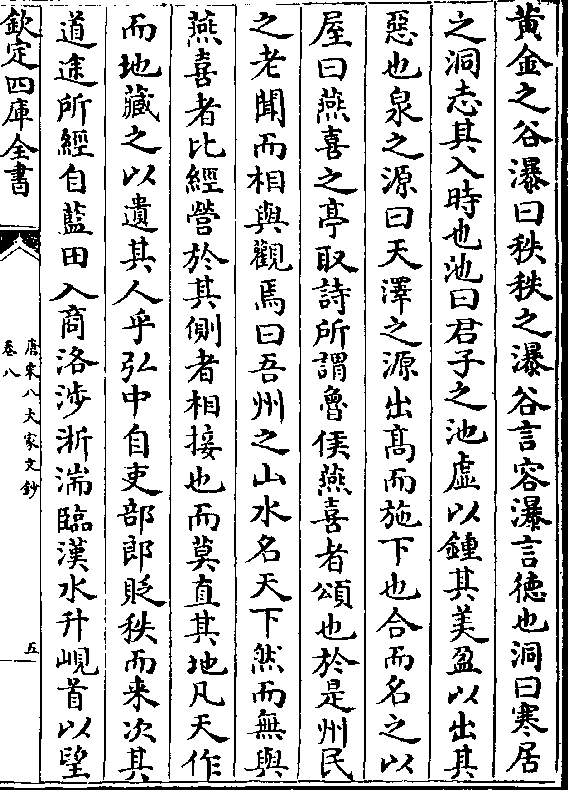 黄金之谷瀑曰秩秩之瀑谷言容瀑言徳也洞曰寒居
之洞志其入時也池曰君子之池虛以鍾其美盈以出其
惡也泉之源曰天澤之源出髙而施下也合而名之以
屋曰燕喜之亭取詩所謂魯侯燕喜者頌也於是州民
之老聞而相與觀焉曰吾州之山水名天下然而無與
燕喜者比經營於其側者相接也而莫直其地凡天作
而地藏之以遺其人乎弘中自吏部郎貶秩而来次其
道途所經自藍田入商洛涉淅湍臨漢水升峴首以望
欽定四庫全書
唐宋八大家文鈔
卷八
五